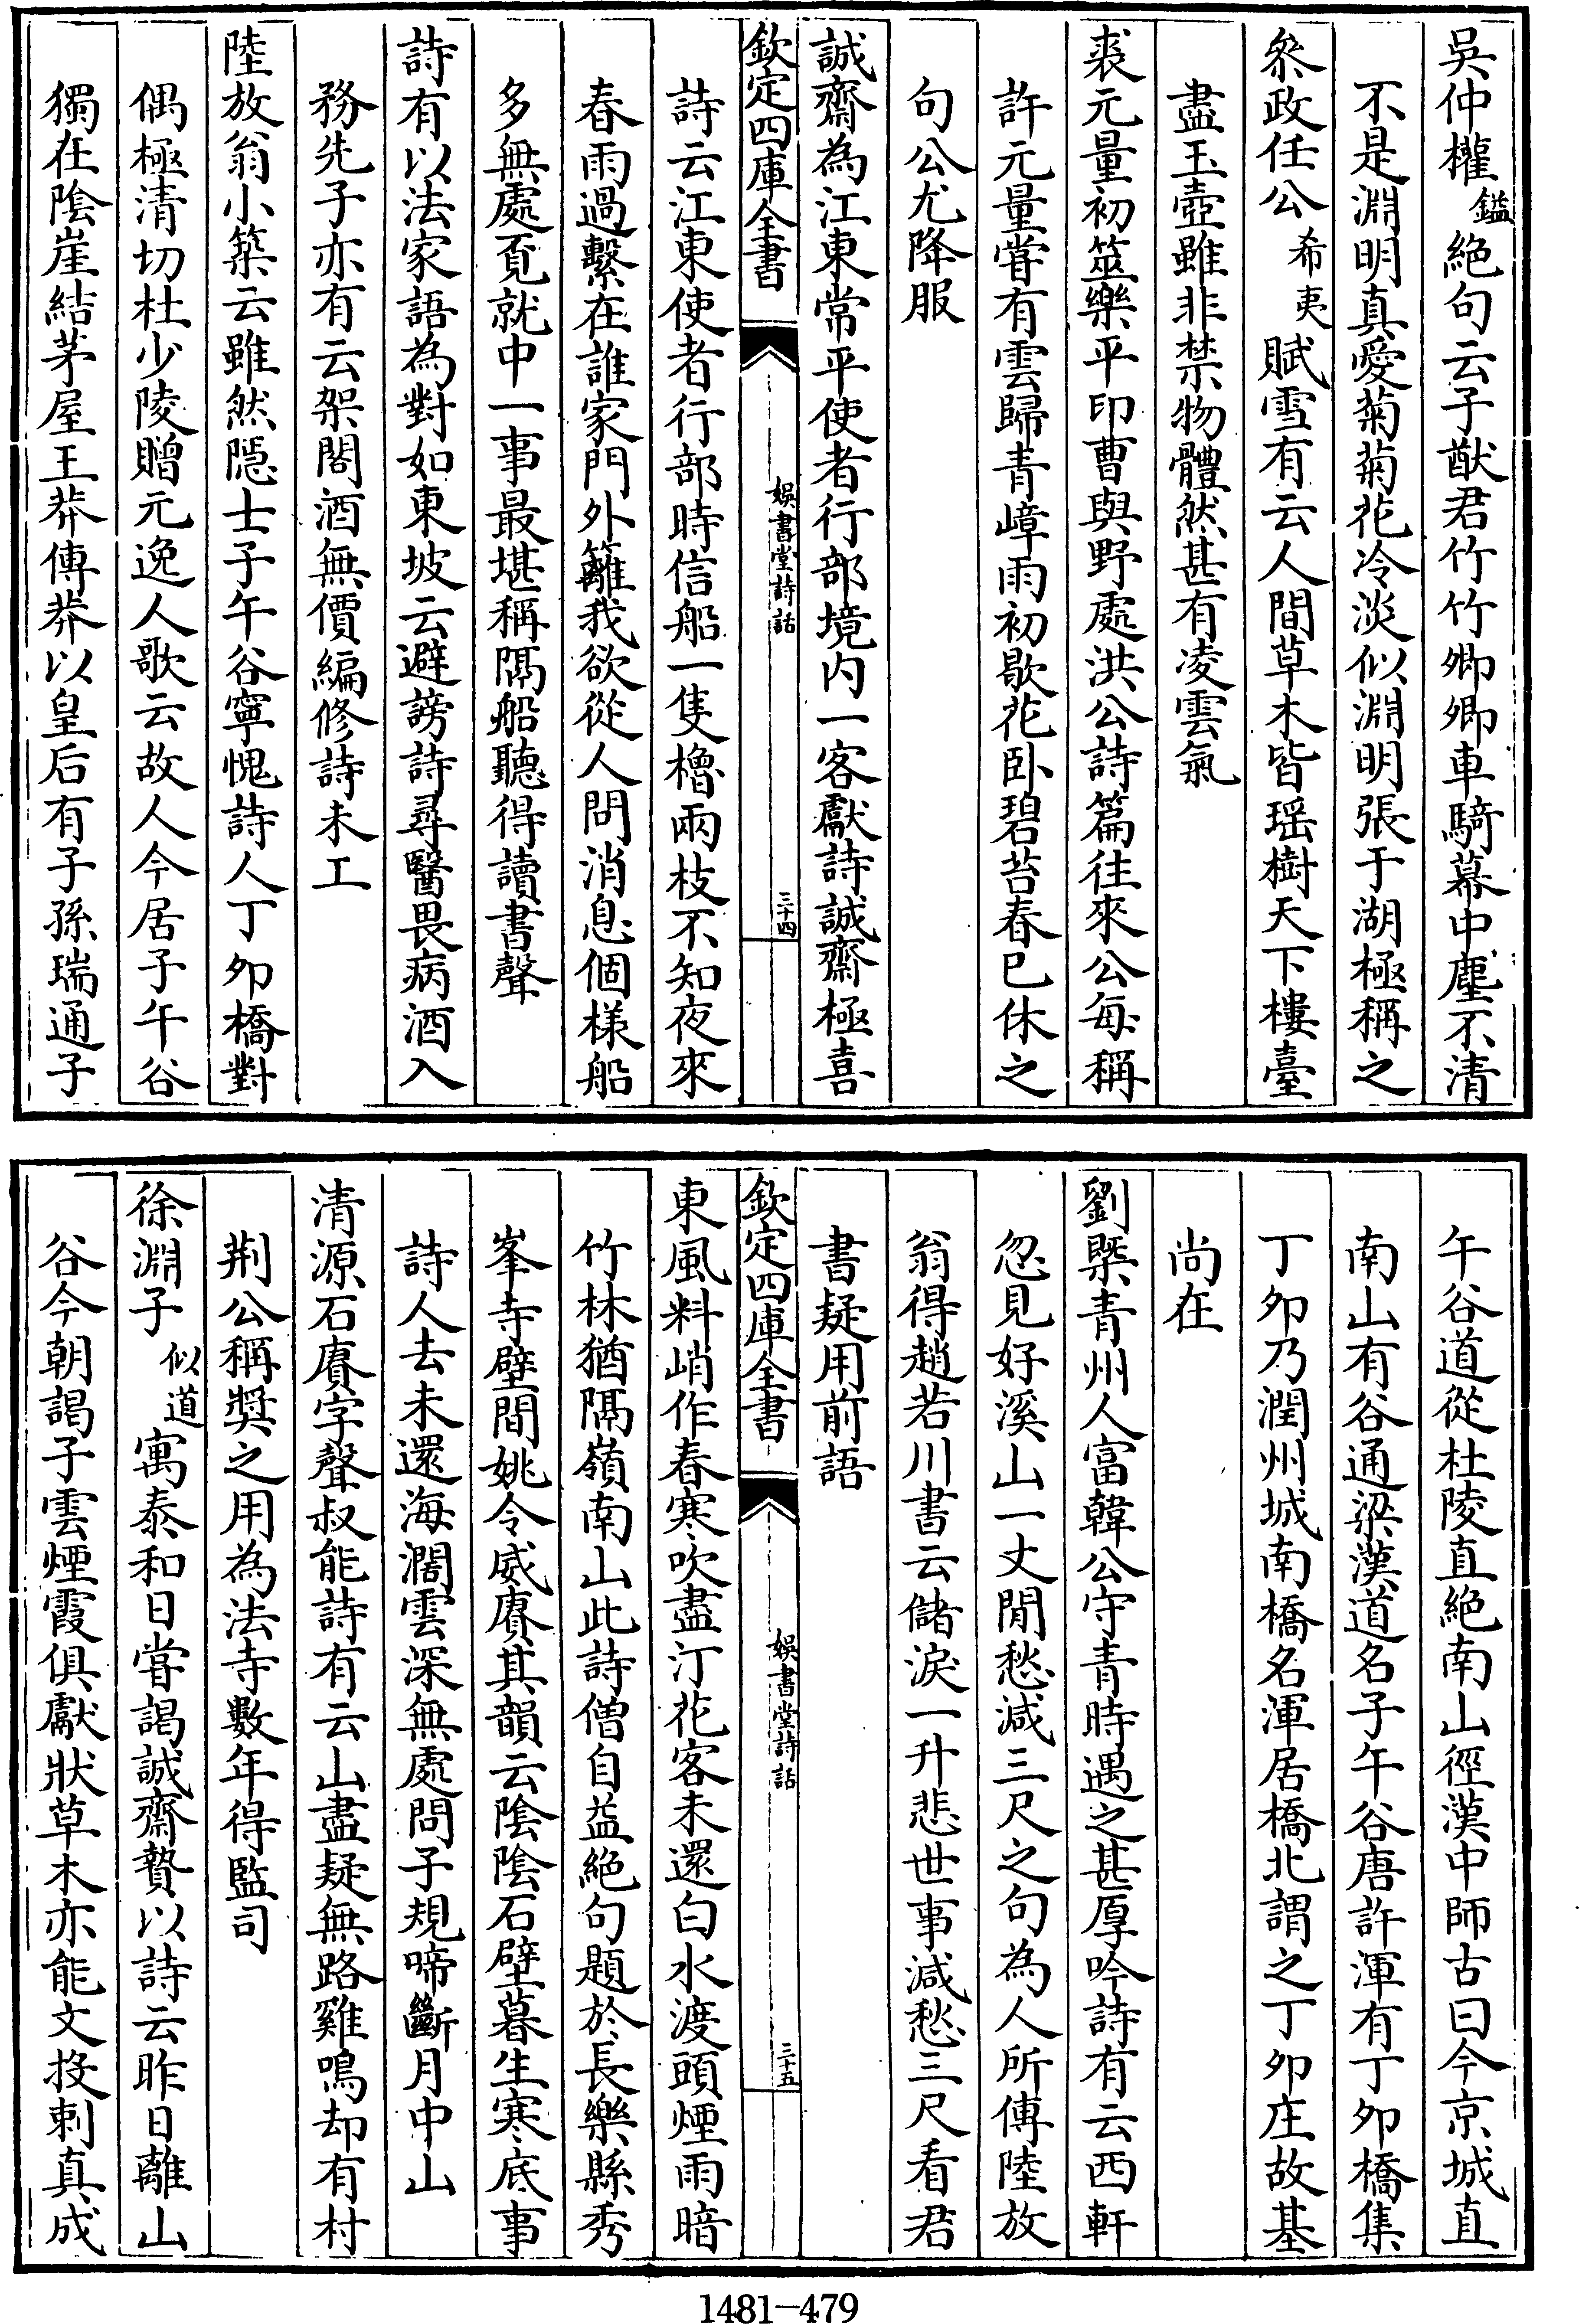 吳仲權鎰絕句云子猷君竹竹卿卿車騎幕中塵不清
不是淵明真愛菊菊花冷淡似淵明張于湖極稱之
叅政任公希夷賦雪有云人間草木皆瑶樹天下樓臺
盡玉壺雖非禁物體然甚有凌雲氣
裘元量初筮樂平印曹與野處洪公詩篇往來公每稱
許元量嘗有雲歸青嶂雨初歇花卧碧苔春已休之
句公尤降服
誠齋為江東常平使者行部境内一客獻詩誠齋極喜
欽定四庫全書
娛書堂詩話
三十四
詩云江東使者行部時信船一隻櫓兩枝不知夜來
春雨過繫在誰家門外籬我欲從人問消息個樣船
多無處覔就中一事最堪稱隔船聽得讀書聲
詩有以法家語為對如東坡云避謗詩尋醫畏病酒入
務先子亦有云架閣酒無價編修詩未工
陸放翁小築云雖然隱士子午谷寧愧詩人丁夘橋對
偶極清切杜少陵贈元逸人歌云故人今居子午谷
獨在陰崖結茅屋王莽傳莽以皇后有子孫瑞通子
午谷道從杜陵直絕南山徑漢中師古曰今京城直
南山有谷通梁漢道名子午谷唐許渾有丁夘橋集
丁夘乃潤州城南橋名渾居橋北謂之丁夘庄故基
尚在
劉槩青州人富韓公守青時遇之甚厚吟詩有云西軒
忽見好溪山一丈閒愁减三尺之句為人所傳陸放
翁得趙若川書云儲淚一升悲世事减愁三尺看君
書疑用前語
欽定四庫全書
娛書堂詩話
三十五
東風料峭作春寒吹盡汀花客未還白水渡頭煙雨暗
竹林猶隔嶺南山此詩僧自益絕句題於長樂縣秀
峯寺壁間姚令威賡其韻云陰陰石壁暮生寒底事
詩人去未還海濶雲深無處問子規啼斷月中山
清源石賡字聲叔能詩有云山盡疑無路雞鳴却有村
荆公稱奬之用為法寺數年得監司
徐淵子似道寓泰和日嘗謁誠齋贄以詩云昨日離山
谷今朝謁子雲煙霞俱獻狀草木亦能文投刺真成
1481—479